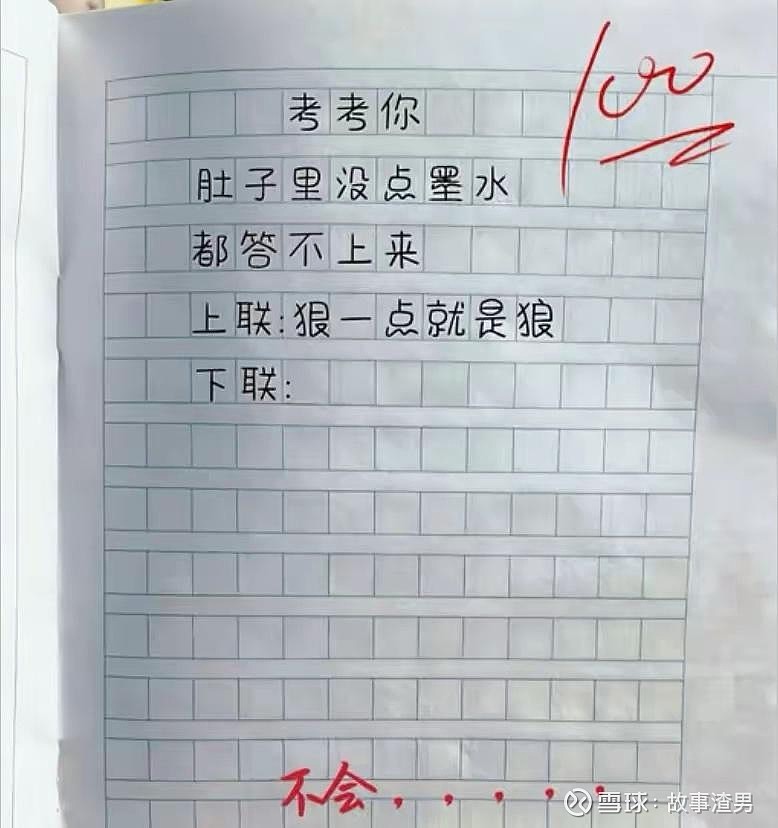 100
考考你
肚子里没点墨水
都答不上来
上联:狠一点就是狼
下联:
不会，，，，，
雪球：故事渣男